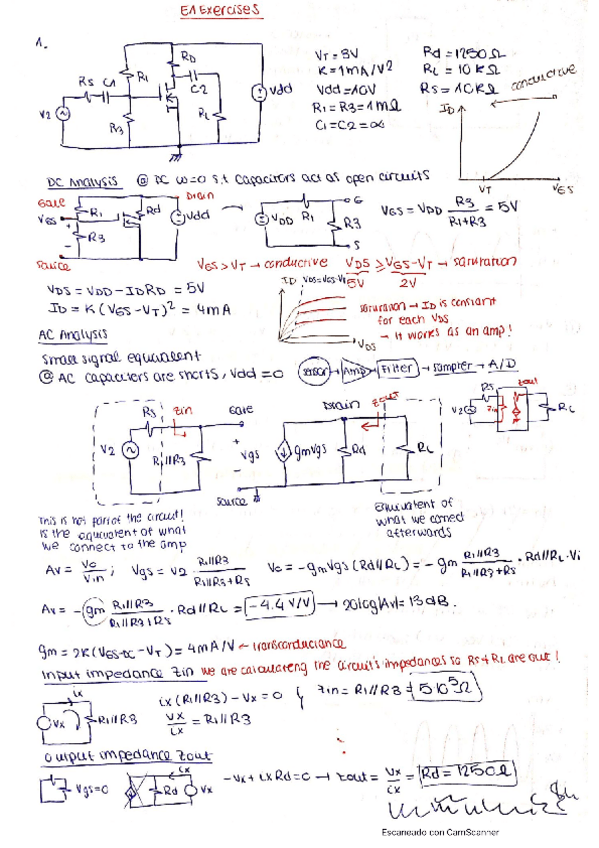 EA Exercises
1.
RS C1 R1 RD C2 RL Vdd V2 R3
VT = 3V Rd = 1250Ω
K = 1mA/V² RL = 10KΩ
Vdd = 10V RS = 10KΩ
R1 = R3 = 1MΩ
C1 = C2 = ∞
conductive
ID
VT VGS
DC Analysis @ DC ω=0 s.t capacitors act as open circuits
Gate Drain
VGS R1 Rd Vdd R3
source
VDD R1 R3 G S
VGS = VDD R3/(R1+R3) = 5V
VGS > VT → conductive VDS ≥ VGS-VT → saturation
5V 2V
VDS = VDD - IDRD = 5V
ID = K(VGS-VT)² = 4mA
ID VDS=VGS-VT
VDS
saturation → ID is constant
for each VDS
→ it works as an amp!
AC Analysis
small signal equivalent
@ AC capacitors are shorts, Vdd = 0
sensor → Amp → Filter → sampler → A/D
RS Zin Gate Drain Zout
V2 R1//R3 Vgs gmVgs Rd RL
source
RS Zout V2 Zin RL
This is not part of the circuit!
is the equivalent of what
we connect to the amp
equivalent of
what we connect
afterwards
Av = Vo/Vin ; Vgs = V2 · R1//R3/(R1//R3+RS) Vo = -gmVgs(Rd//RL) = -gm R1//R3/(R1//R3+RS) · Rd//RL · Vi
Av = -gm R1//R3/(R1//R3+RS) · Rd//RL = -4.4 V/V → 20log|Av| = 13dB.
gm = 2K(VGS-DC - VT) = 4mA/V ← transconductance
Input impedance Zin we are calculating the circuit's impedances so RS & RL are out!
ix
Vx R1//R3
ix(R1//R3) - Vx = 0 } Zin = R1//R3 = 5·10⁵Ω
Vx/ix = R1//R3
output impedance Zout
Vgs=0 ix Rd Vx
-Vx + ixRd = 0 → Zout = Vx/ix = Rd = 1250Ω
Escaneado con CamScanner